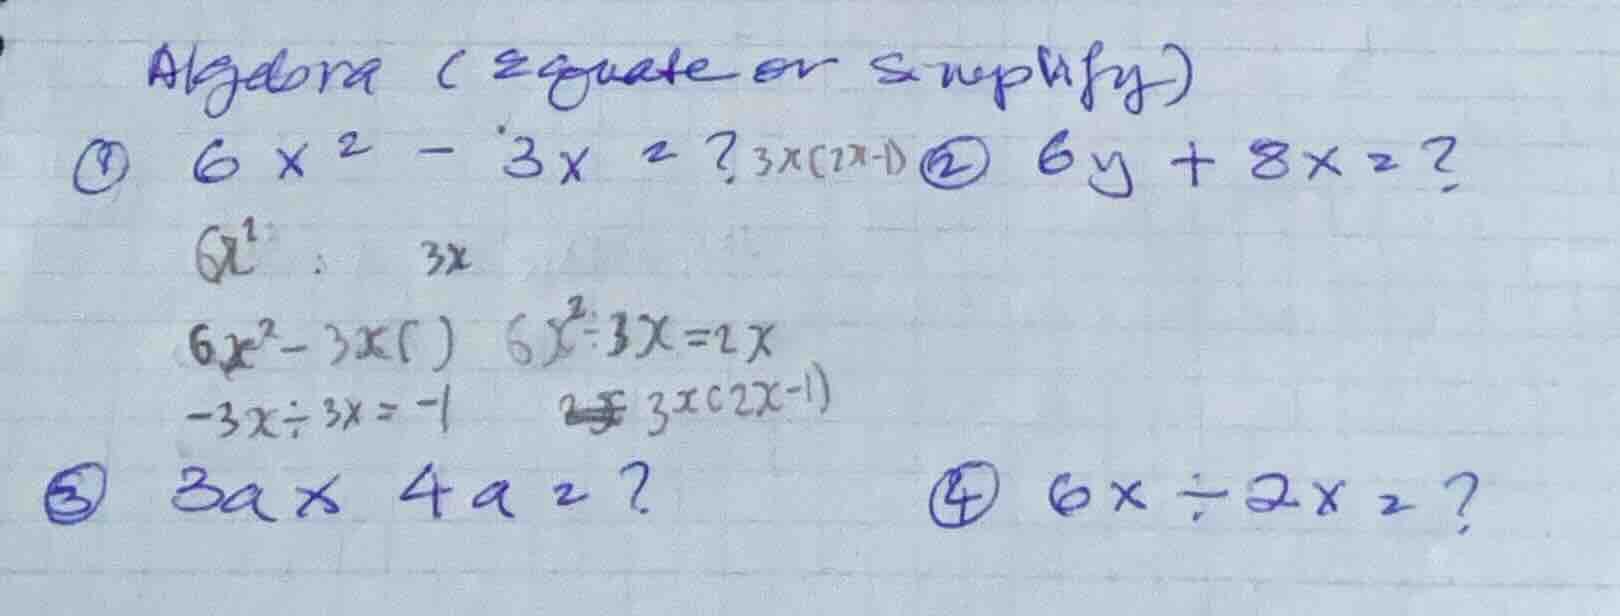 Algebra (Equate or Simplify)
① 6x² - 3x = ? 3x(2x-1) ② 6y + 8x = ?
6x² : 3x
6x² - 3x( ) 6x² ÷ 3x = 2x
-3x ÷ 3x = -1 3x(2x-1)
③ 3a x 4a = ? ④ 6x ÷ 2x = ?